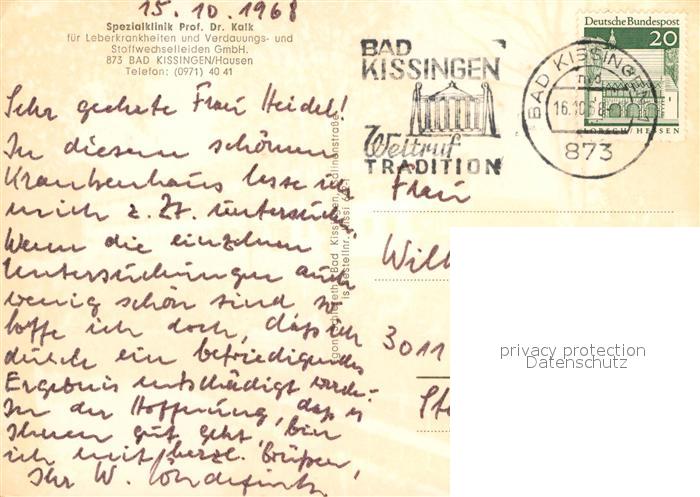 15.10.1968
Spezialklinik Prof. Dr. Kalk
für Leberkrankheiten und Verdauungs- und
Stoffwechselleiden GmbH.
873 BAD KISSINGEN/Hausen
Telefon: (0971) 40 41
Sehr geehrte Frau Heidel!
In diesem schönen
Krankenhaus lasse ich
mich z. Zt. untersuchen.
Wenn die einzelnen
Untersuchungen auch
wenig schön sind so
hoffe ich doch, daß ich
durch ein befriedigendes
Ergebnis entschädigt werde.
In der Hoffnung, daß es
Ihnen gut geht, bin
ich mit herzl. Grüßen,
Ihr W.
Bad Kissingen
BAD
KISSINGEN
Weltruf
TRADITION
Deutsche Bundespost
20
LORSCH/HESSEN
BAD KISSINGEN 1
16.10.68
873
Frau
Wilh
3011
privacy protection
Datenschutz